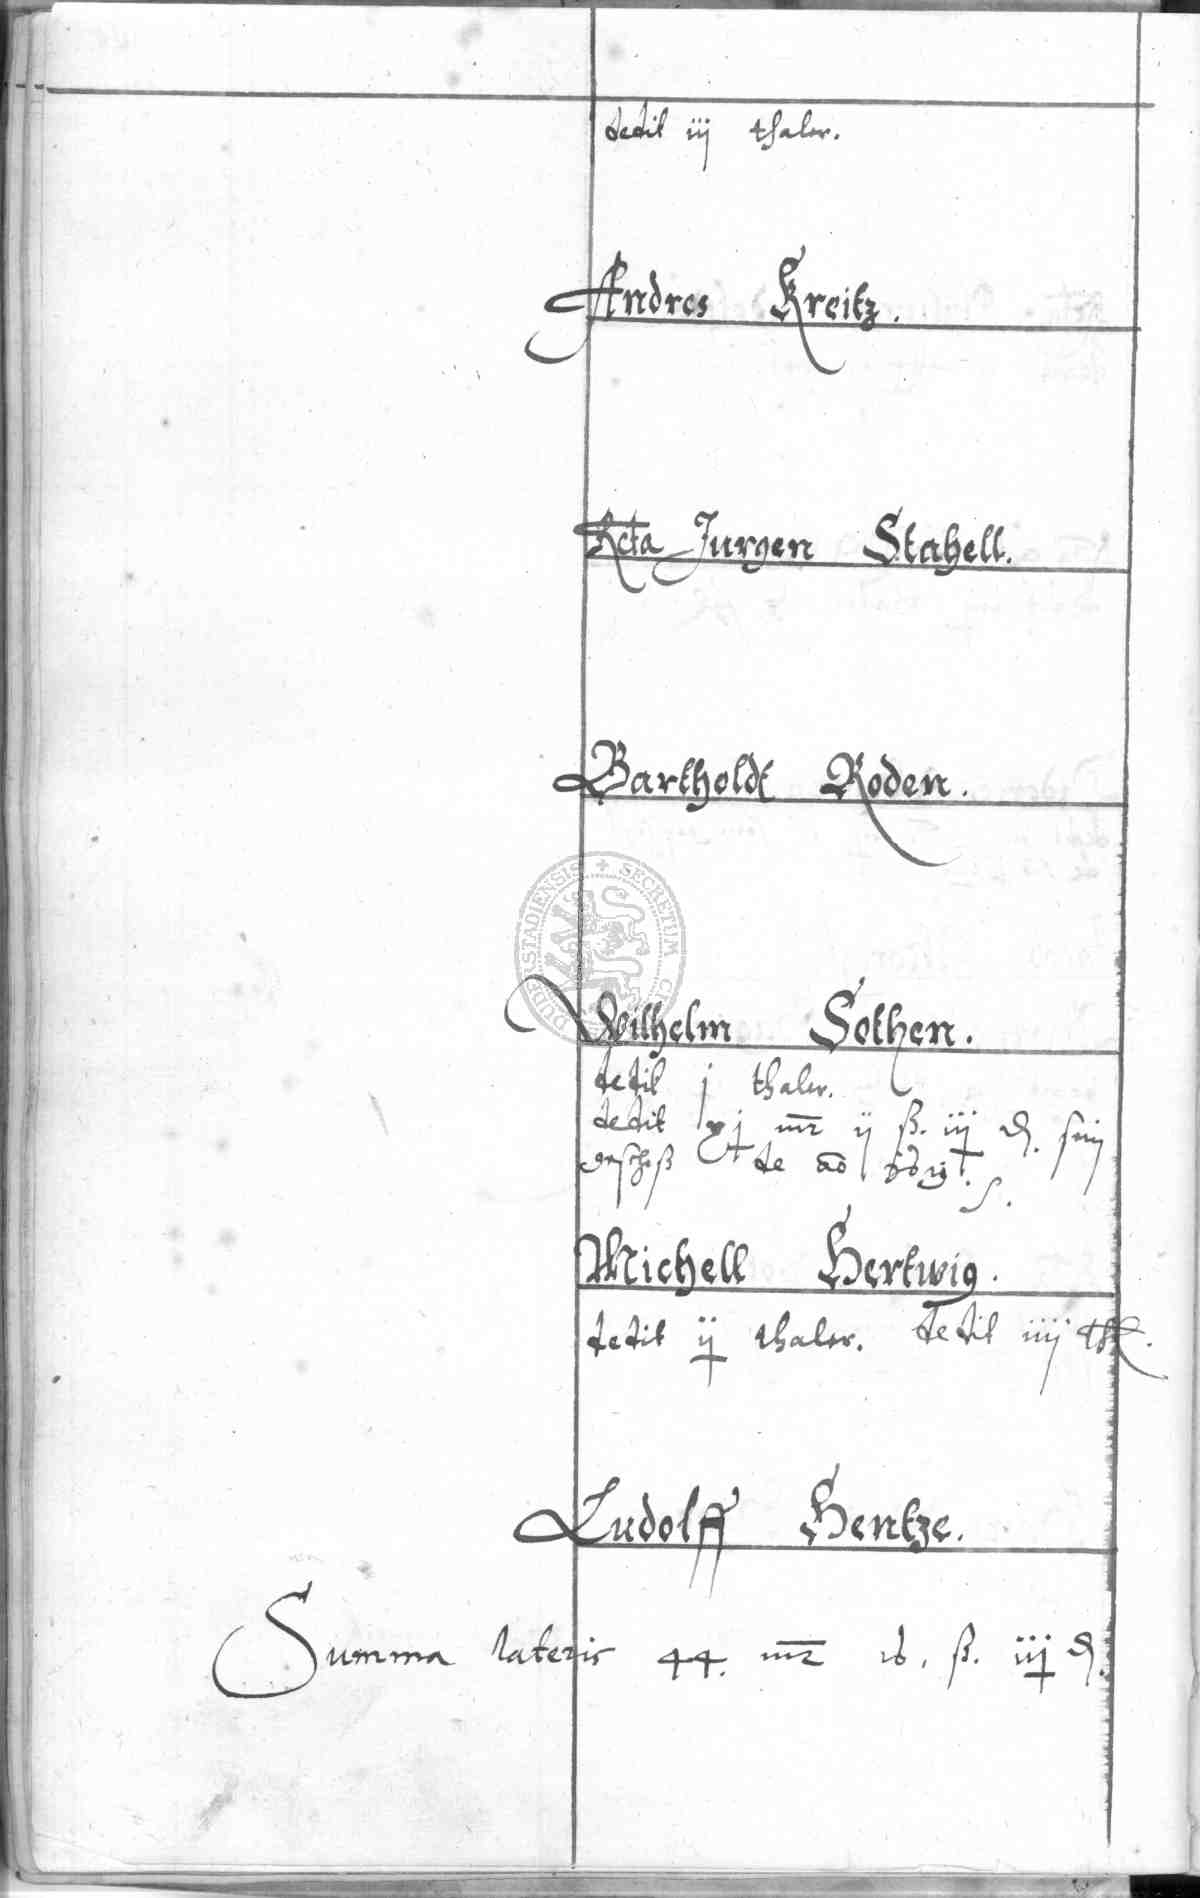 dedit iij thaler.
Andres Kreitz.
Rcta Jurgen Stahell.
Bartholdt Roden.
DUDERSTADIENSIS + SECRETUM
Wilhelm Sothen.
dedit j thaler.
dedit mr ij ß. iij d.
de ao
Michell Hertwig.
dedit ij thaler. dedit iiij
Ludolff Hentze.
Summa lateris 44. mr ß. iiij d.